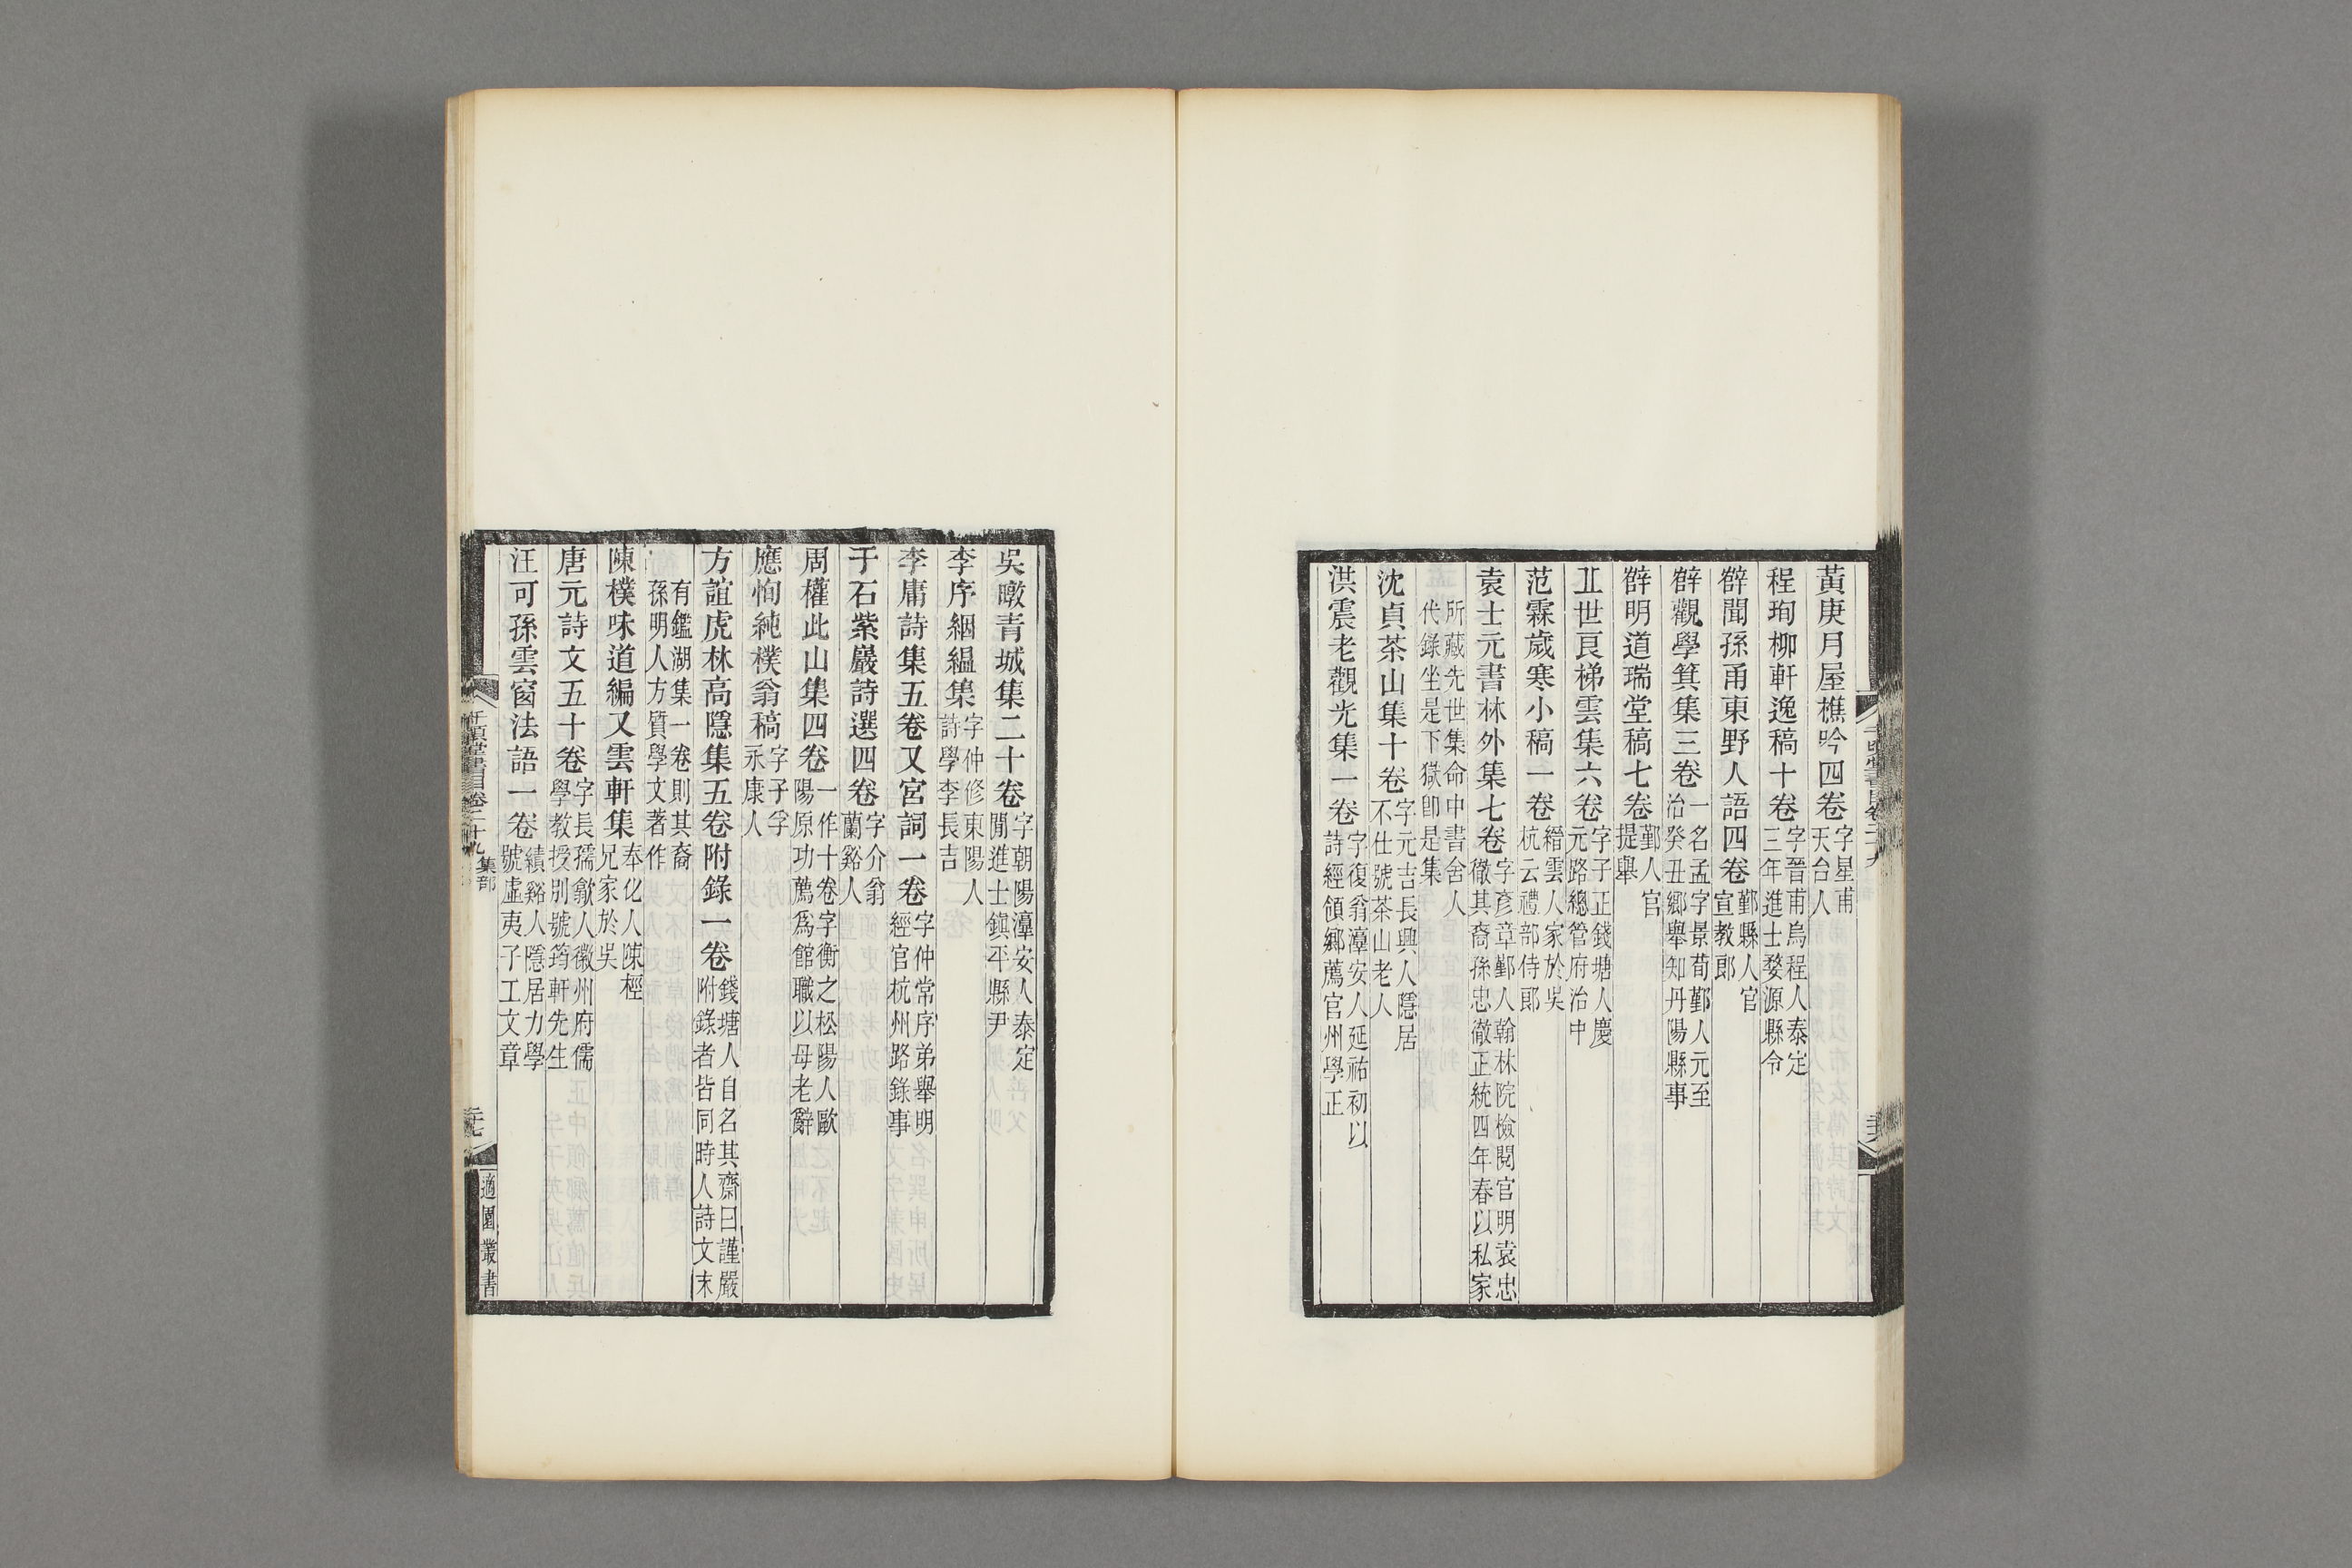 黃庚月屋樵吟四卷字星甫天台人
程珣柳軒逸稿十卷字晉甫烏程人泰定三年進士婺源縣令
薛聞孫甬東野人語四卷鄞縣人官宣教郎
薛觀學箕集三卷一名孟字景荀鄞人元至治癸丑鄉舉知丹陽縣事
薛明道瑞堂稿七卷鄞人官提舉
丘世良梯雲集六卷字子正錢塘人慶元路總管府治中
范霖歲寒小稿一卷縉雲人家於吳杭云禮部侍郎
袁士元書林外集七卷字彥章鄞人翰林院檢閱官明袁忠徹其裔孫忠徹正統四年春以私家
所藏先世集命中書舍人代錄坐是下獄卽是集
沈貞茶山集十卷字元吉長興人隱居不仕號茶山老人
洪震老觀光集一卷字復翁淳安人延祐初以詩經領鄉薦官州學正
吳暾青城集二十卷字朝陽淳安人泰定間進士鎭平縣尹
李序絪縕集字仲修東陽人詩學李長吉
李庸詩集五卷又宮詞一卷字仲常序弟舉明經官杭州路錄事
于石紫巖詩選四卷字介翁蘭谿人
周權此山集四卷一作十卷字衡之松陽人歐陽原功薦爲館職以母老辭
應恂純樸翁稿字子孚永康人
方誼虎林高隱集五卷附錄一卷錢塘人自名其齋曰謹嚴附錄者皆同時人詩文末
有鑑湖集一卷則其裔孫明人方質學文著作
陳樸味道編又雲軒集奉化人陳桱兄家於吳
唐元詩文五十卷字長孺歙人徽州府儒學教授別號筠軒先生
汪可孫雲窗法語一卷績谿人隱居力學號虛夷子工文章
千頃堂書目卷二十九
集部
適園叢書